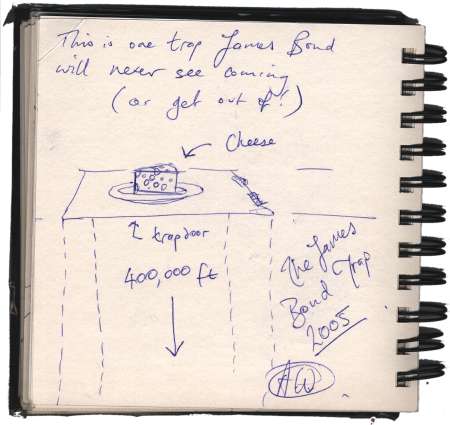 This is one trap James Bond
will never see coming
(or get out of!)
Cheese
trapdoor
400,000 ft
The James
Bond Trap
2005
AW